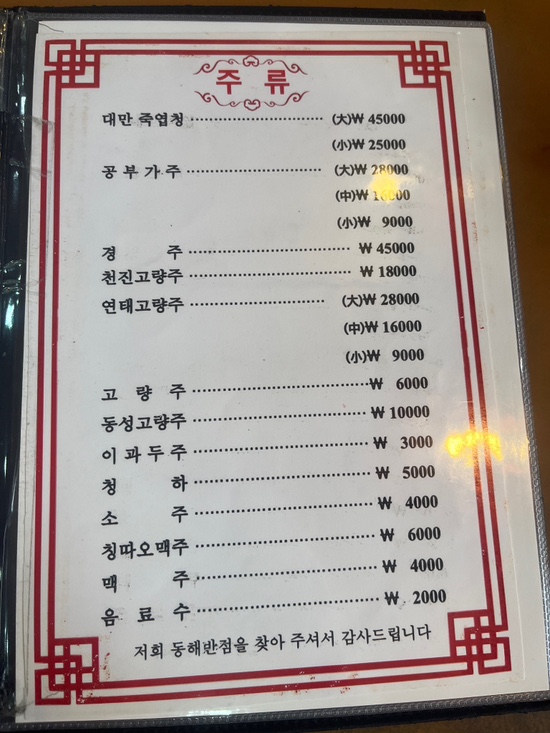 주 류
대만 죽엽청 (大)₩ 45000
(小)₩ 25000
공부가주 (大)₩ 28000
(中)₩
(小)₩ 9000
경 주 ₩ 45000
천진고량주 ₩ 18000
연태고량주 (大)₩ 28000
(中)₩ 16000
(小)₩ 9000
고 량 주 ₩ 6000
동성고량주 ₩ 10000
이과두주 ₩ 3000
청 하 ₩ 5000
소 주 ₩ 4000
칭따오맥주 ₩ 6000
맥 주 ₩ 4000
음 료 수 ₩ 2000
저희 동해반점을 찾아 주셔서 감사드립니다